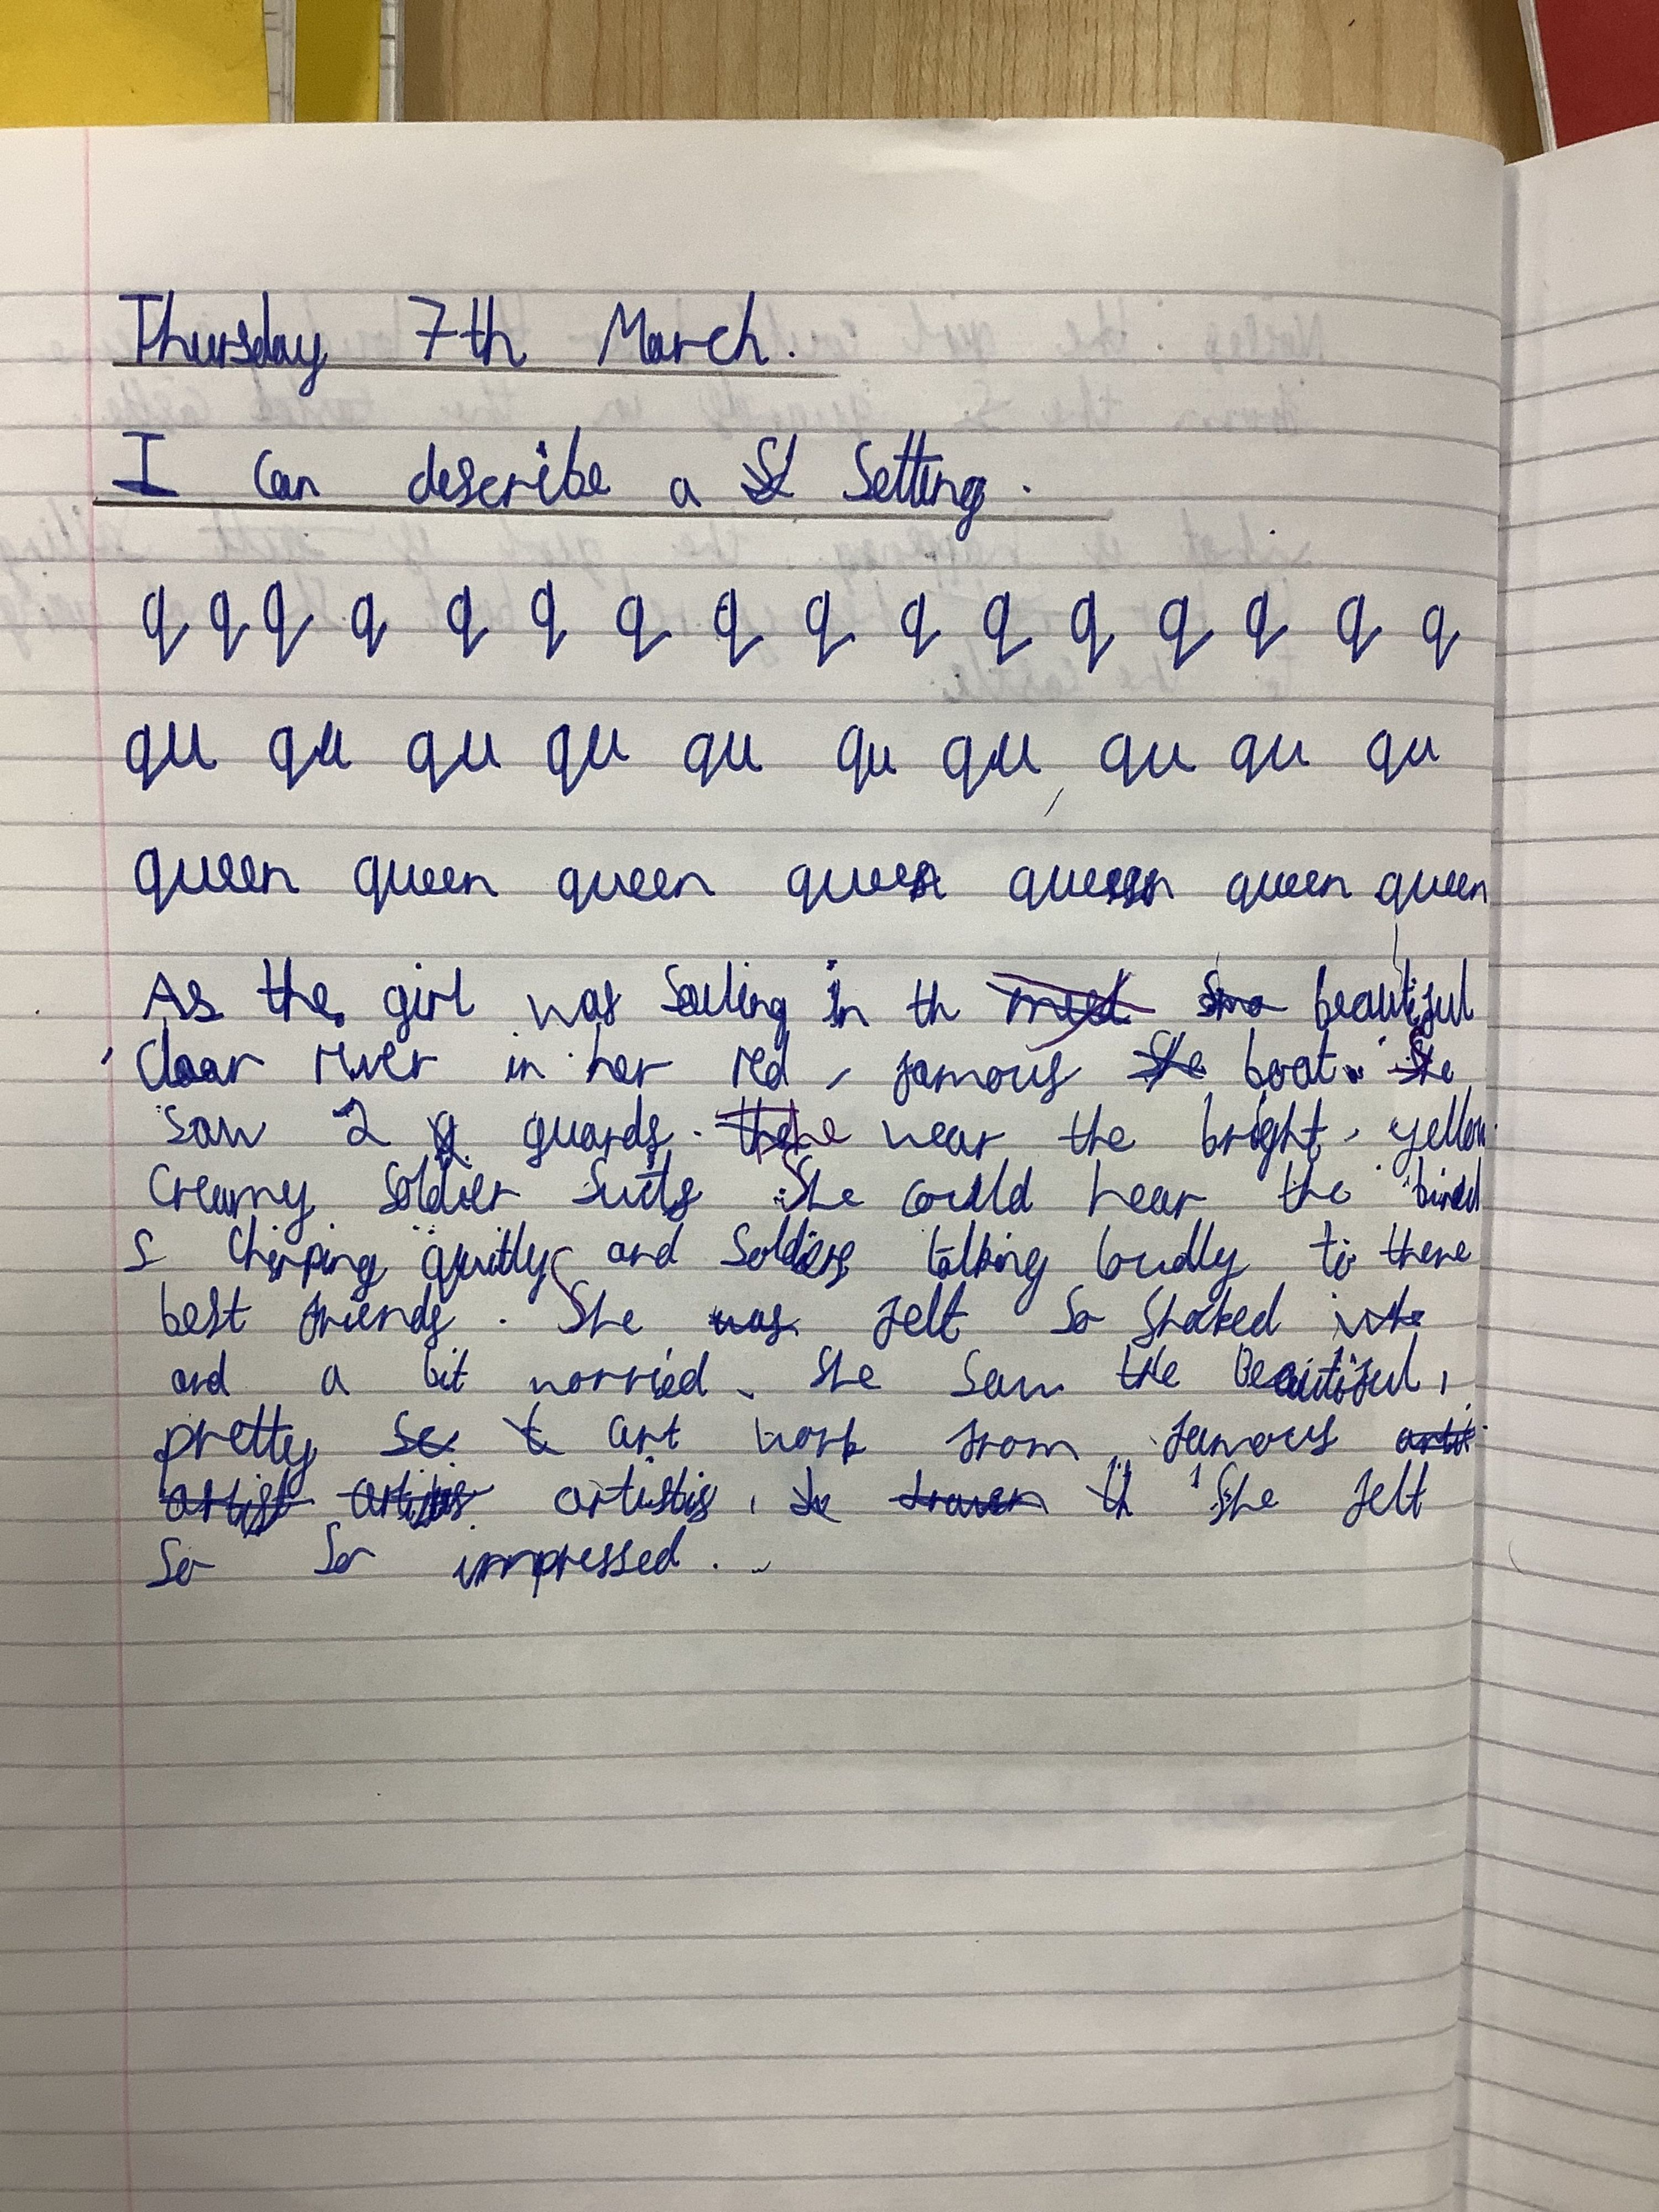 Thursday 7th March.
I can describe a Setting.
q q q q q q q q q q q q q q q q
qu qu qu qu qu qu qu qu qu qu
queen queen queen queen queen queen queen
As the girl was Sailing in th beautiful
Clear river in her red, famous boat. She
saw 2 guards. near the bright, yellow
creamy Soldier Suits. She could hear the bird
s Chirping quitly and Soldiers talking loudly to there
best friends. She felt So Shocked
and a bit worried. She Saw the Beautiful,
pretty art work from famous
artistis, She felt
So So impressed.